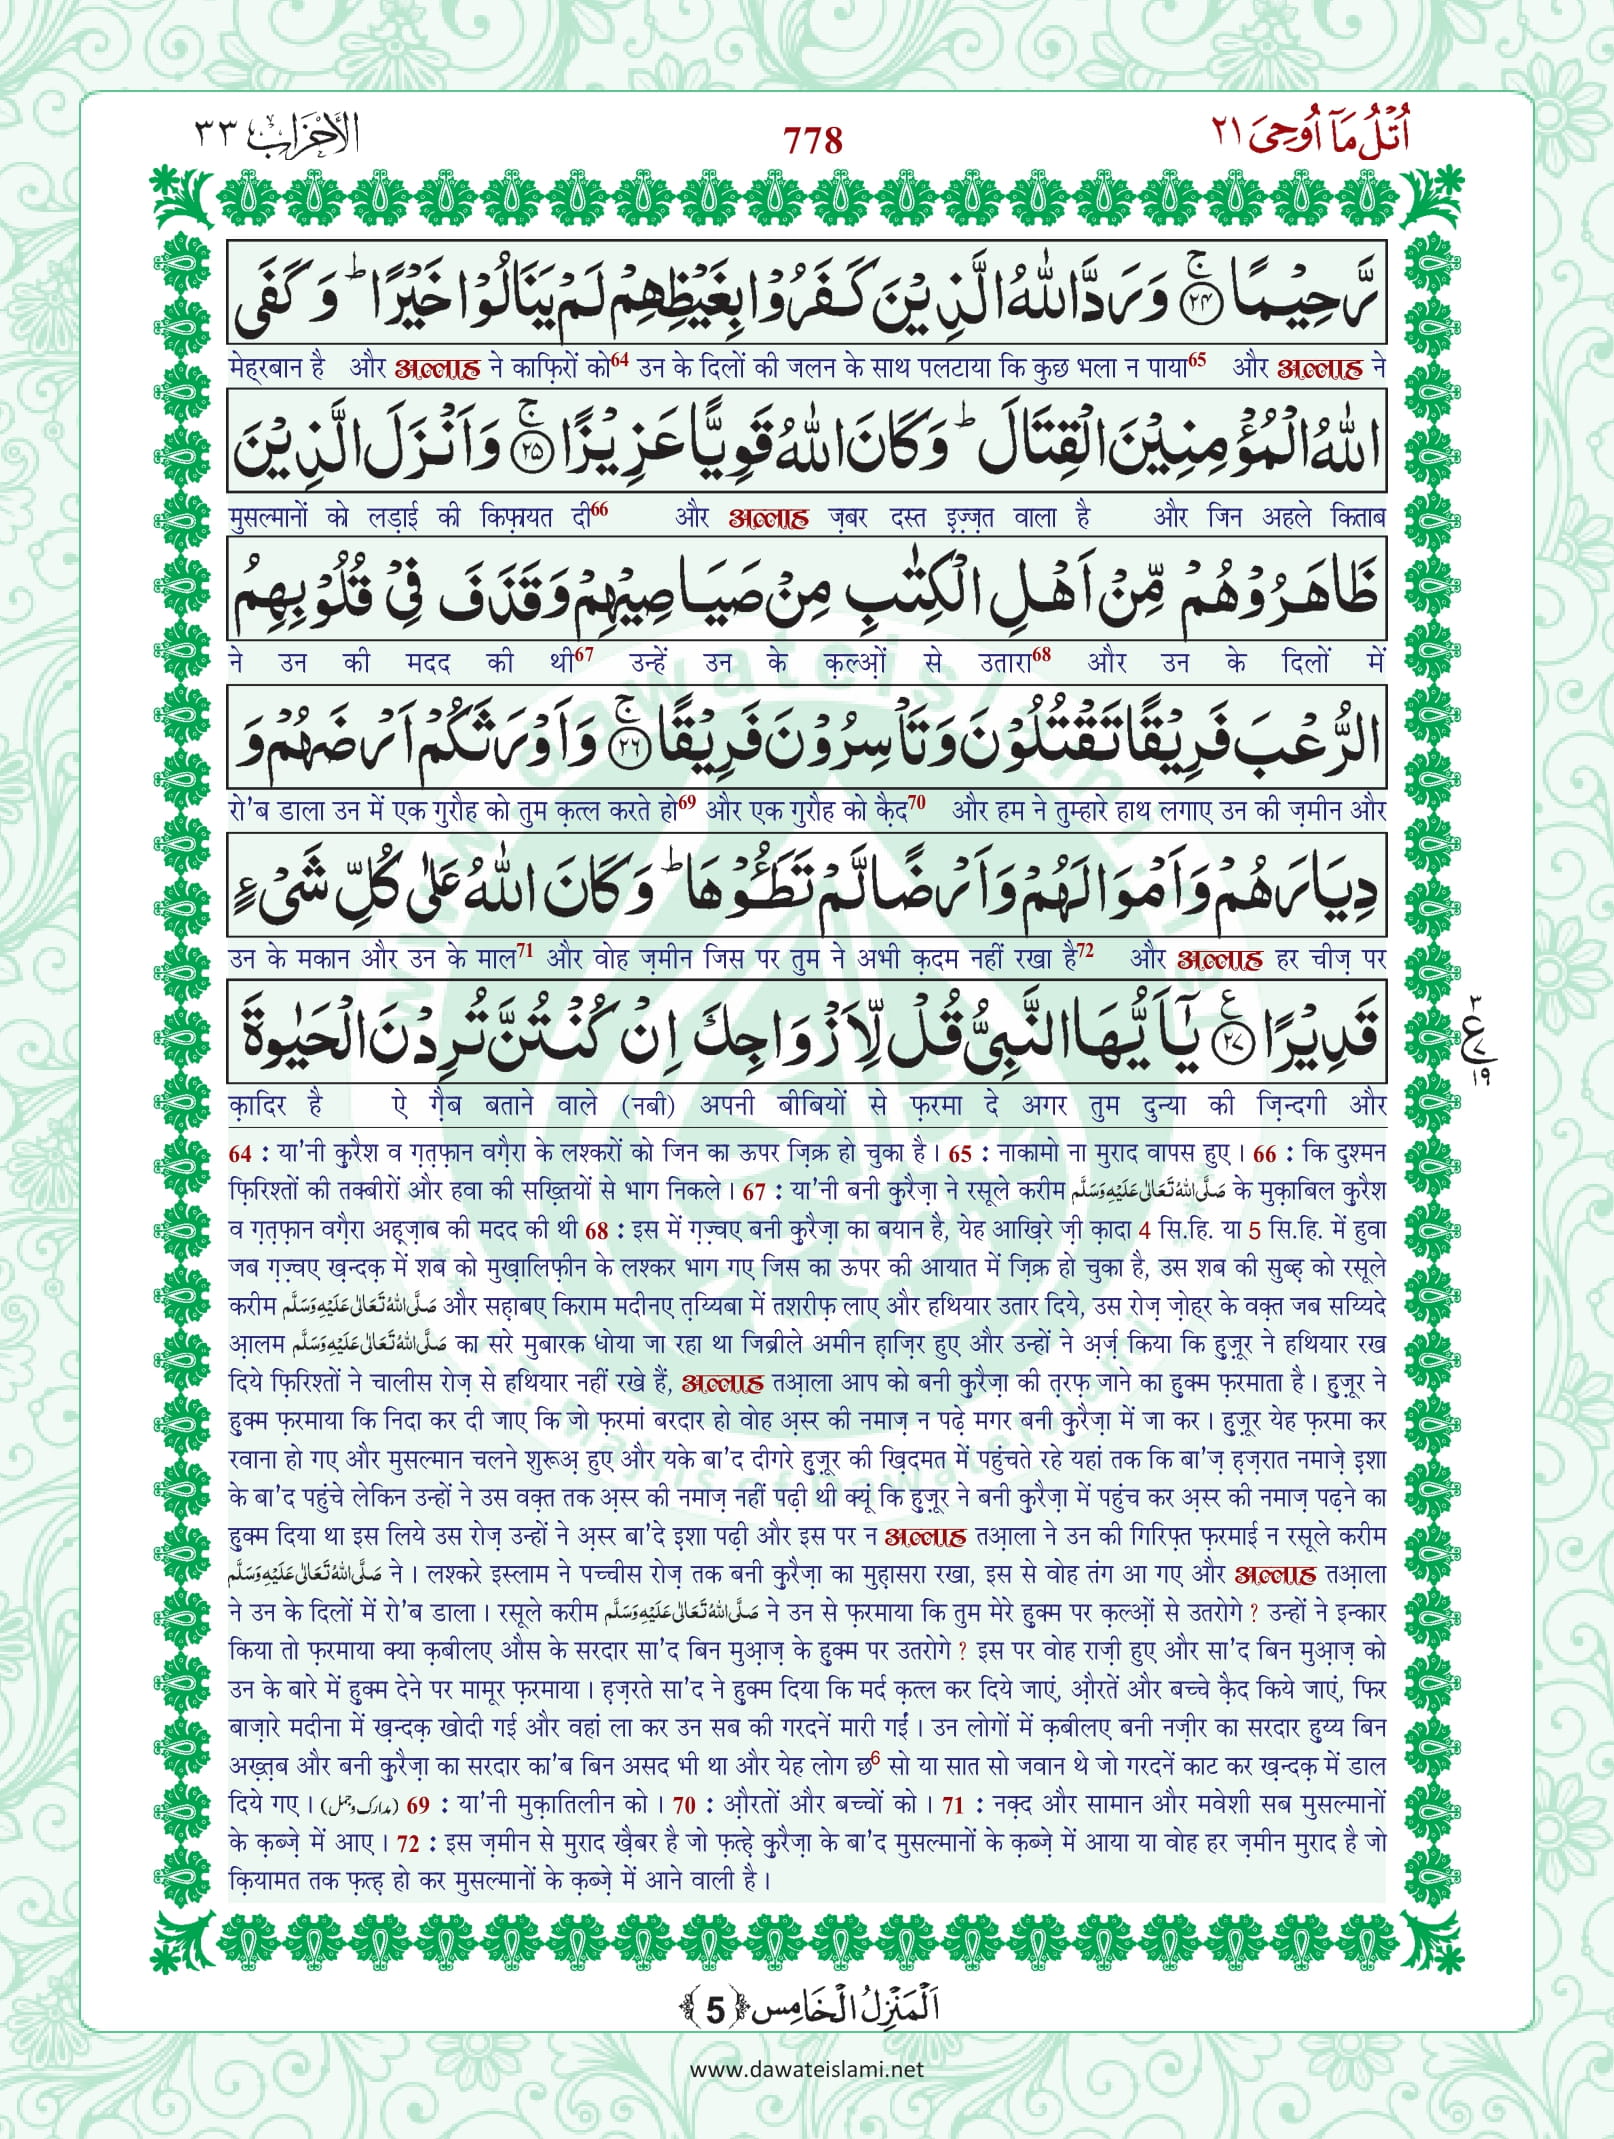 اُتْلُ مَاۤ اُوْحِیَ ٢١
778
الْاَحْزَاب ٣٣
رَّحِیْمًا ۚ﴿۲۴﴾ وَ رَدَّ اللّٰهُ الَّذِیْنَ كَفَرُوْا بِغَیْظِهِمْ لَمْ یَنَالُوْا خَیْرًا ؕ وَ كَفَى
मेहरबान है और अल्लाह ने काफ़िरों को64 उन के दिलों की जलन के साथ पलटाया कि कुछ भला न पाया65 और अल्लाह ने
اللّٰهُ الْمُؤْمِنِیْنَ الْقِتَالَ ؕ وَ كَانَ اللّٰهُ قَوِیًّا عَزِیْزًا ۚ﴿۲۵﴾ وَ اَنْزَلَ الَّذِیْنَ
मुसल्मानों को लड़ाई की किफ़ायत दी66 और अल्लाह ज़बर दस्त इ़ज़्ज़त वाला है और जिन अहले किताब
ظَاهَرُوْهُمْ مِّنْ اَهْلِ الْكِتٰبِ مِنْ صَیَاصِیْهِمْ وَ قَذَفَ فِیْ قُلُوْبِهِمُ
ने उन की मदद की थी67 उन्हें उन के क़ल्ओ़ं से उतारा68 और उन के दिलों में
الرُّعْبَ فَرِیْقًا تَقْتُلُوْنَ وَ تَاْسِرُوْنَ فَرِیْقًا ۚ﴿۲۶﴾ وَ اَوْرَثَكُمْ اَرْضَهُمْ وَ
रो'ब डाला उन में एक गुरौह को तुम क़त्ल करते हो69 और एक गुरौह को क़ैद70 और हम ने तुम्हारे हाथ लगाए उन की ज़मीन और
دِیَارَهُمْ وَ اَمْوَالَهُمْ وَ اَرْضًا لَّمْ تَطَـُٔوْهَا ؕ وَ كَانَ اللّٰهُ عَلٰى كُلِّ شَیْءٍ
उन के मकान और उन के माल71 और वोह ज़मीन जिस पर तुम ने अभी क़दम नहीं रखा है72 और अल्लाह हर चीज़ पर
قَدِیْرًا ﴿۲۷﴾ ع یٰۤاَیُّهَا النَّبِیُّ قُلْ لِّاَزْوَاجِكَ اِنْ كُنْتُنَّ تُرِدْنَ الْحَیٰوةَ
٣ ع ١٩
क़ादिर है ऐ ग़ैब बताने वाले (नबी) अपनी बीबियों से फ़रमा दे अगर तुम दुन्या की ज़िन्दगी और
64 : या'नी कुरैश व ग़त़फ़ान वग़ैरा के लश्करों को जिन का ऊपर ज़िक्र हो चुका है। 65 : नाकामो ना मुराद वापस हुए। 66 : कि दुश्मन
फ़िरिश्तों की तक्बीरों और हवा की सख़्तियों से भाग निकले। 67 : या'नी बनी कुरैज़ा ने रसूले करीम صَلَّى اللهُ تَعَالٰى عَلَيْهِ وَسَلَّم के मुक़ाबिल कुरैश
व ग़त़फ़ान वग़ैरा अह़ज़ाब की मदद की थी 68 : इस में ग़ज़्वए बनी कुरैज़ा का बयान है, येह आख़िरे ज़ी क़ादा 4 सि.हि. या 5 सि.हि. में हुवा
जब ग़ज़्वए ख़न्दक़ में शब को मुख़ालिफ़ीन के लश्कर भाग गए जिस का ऊपर की आयात में ज़िक्र हो चुका है, उस शब की सुब्ह़ को रसूले
करीम صَلَّى اللهُ تَعَالٰى عَلَيْهِ وَسَلَّم और सह़ाबए किराम मदीनए त़य्यिबा में तशरीफ़ लाए और हथियार उतार दिये, उस रोज़ ज़ोहर के वक़्त जब सय्यिदे
आ़लम صَلَّى اللهُ تَعَالٰى عَلَيْهِ وَسَلَّم का सरे मुबारक धोया जा रहा था जिब्रीले अमीन ह़ाज़िर हुए और उन्हों ने अ़र्ज़ किया कि हुज़ूर ने हथियार रख
दिये फ़िरिश्तों ने चालीस रोज़ से हथियार नहीं रखे हैं, अल्लाह तआ़ला आप को बनी कुरैज़ा की त़रफ़ जाने का हुक्म फ़रमाता है। हुज़ूर ने
हुक्म फ़रमाया कि निदा कर दी जाए कि जो फ़रमां बरदार हो वोह अ़स्र की नमाज़ न पढ़े मगर बनी कुरैज़ा में जा कर। हुज़ूर येह फ़रमा कर
रवाना हो गए और मुसल्मान चलने शुरूअ़ हुए और यके बा'द दीगरे हुज़ूर की ख़िदमत में पहुंचते रहे यहां तक कि बा'ज़ ह़ज़रात नमाज़े इशा
के बा'द पहुंचे लेकिन उन्हों ने उस वक़्त तक अ़स्र की नमाज़ नहीं पढ़ी थी क्यूं कि हुज़ूर ने बनी कुरैज़ा में पहुंच कर अ़स्र की नमाज़ पढ़ने का
हुक्म दिया था इस लिये उस रोज़ उन्हों ने अ़स्र बा'दे इशा पढ़ी और इस पर न अल्लाह तआ़ला ने उन की गिरिफ़्त फ़रमाई न रसूले करीम
صَلَّى اللهُ تَعَالٰى عَلَيْهِ وَسَلَّم ने। लश्करे इस्लाम ने पच्चीस रोज़ तक बनी कुरैज़ा का मुह़ासरा रखा, इस से वोह तंग आ गए और अल्लाह तआ़ला
ने उन के दिलों में रो'ब डाला। रसूले करीम صَلَّى اللهُ تَعَالٰى عَلَيْهِ وَسَلَّم ने उन से फ़रमाया कि तुम मेरे हुक्म पर क़ल्ओ़ं से उतरोगे ? उन्हों ने इन्कार
किया तो फ़रमाया क्या क़बीलए औस के सरदार सा'द बिन मुआ़ज़ के हुक्म पर उतरोगे ? इस पर वोह राज़ी हुए और सा'द बिन मुआ़ज़ को
उन के बारे में हुक्म देने पर मामूर फ़रमाया। ह़ज़रते सा'द ने हुक्म दिया कि मर्द क़त्ल कर दिये जाएं, औ़रतें और बच्चे क़ैद किये जाएं, फिर
बाज़ारे मदीना में ख़न्दक़ खोदी गई और वहां ला कर उन सब की गरदनें मारी गईं। उन लोगों में क़बीलए बनी नज़ीर का सरदार हुय्य बिन
अख़्त़ब और बनी कुरैज़ा का सरदार का'ब बिन असद भी था और येह लोग छ6 सो या सात सो जवान थे जो गरदनें काट कर ख़न्दक़ में डाल
दिये गए। (مدارک وجمل) 69 : या'नी मुक़ातिलीन को। 70 : औ़रतों और बच्चों को। 71 : नक़्द और सामान और मवेशी सब मुसल्मानों
के क़ब्ज़े में आए। 72 : इस ज़मीन से मुराद ख़ैबर है जो फ़त्ह़े कुरैज़ा के बा'द मुसल्मानों के क़ब्ज़े में आया या वोह हर ज़मीन मुराद है जो
क़ियामत तक फ़त्ह़ हो कर मुसल्मानों के क़ब्ज़े में आने वाली है।
اَلْمَنْزِلُ الْخَامِس ﴿5﴾
www.dawateislami.net